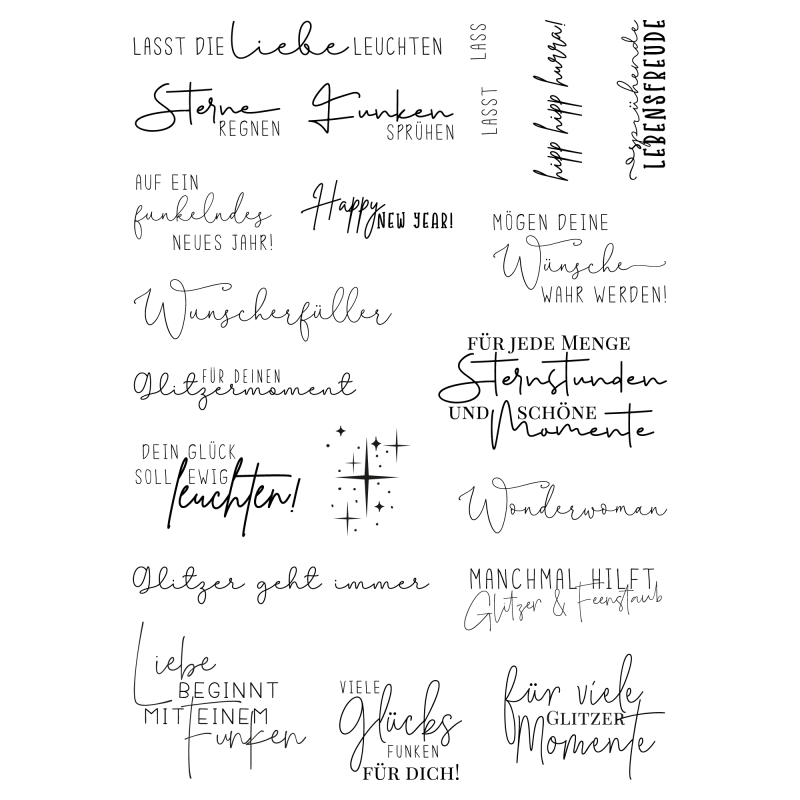 LASST DIE Liebe LEUCHTEN
LASS
LASST
hipp hipp hurra!
sprühende
LEBENSFREUDE
Sterne
REGNEN
Funken
SPRÜHEN
AUF EIN
funkelndes
NEUES JAHR!
Happy
NEW YEAR!
MÖGEN DEINE
Wünsche
WAHR WERDEN!
Wunscherfüller
FÜR JEDE MENGE
Sternstunden
UND SCHÖNE
Momente
FÜR DEINEN
Glitzermoment
DEIN GLÜCK
SOLL EWIG
leuchten!
Wonderwoman
Glitzer geht immer
MANCHMAL HILFT
Glitzer & Feenstaub
Liebe
BEGINNT
MIT EINEM
Funken
VIELE
Glücks
FUNKEN
FÜR DICH!
für viele
GLITZER
Momente